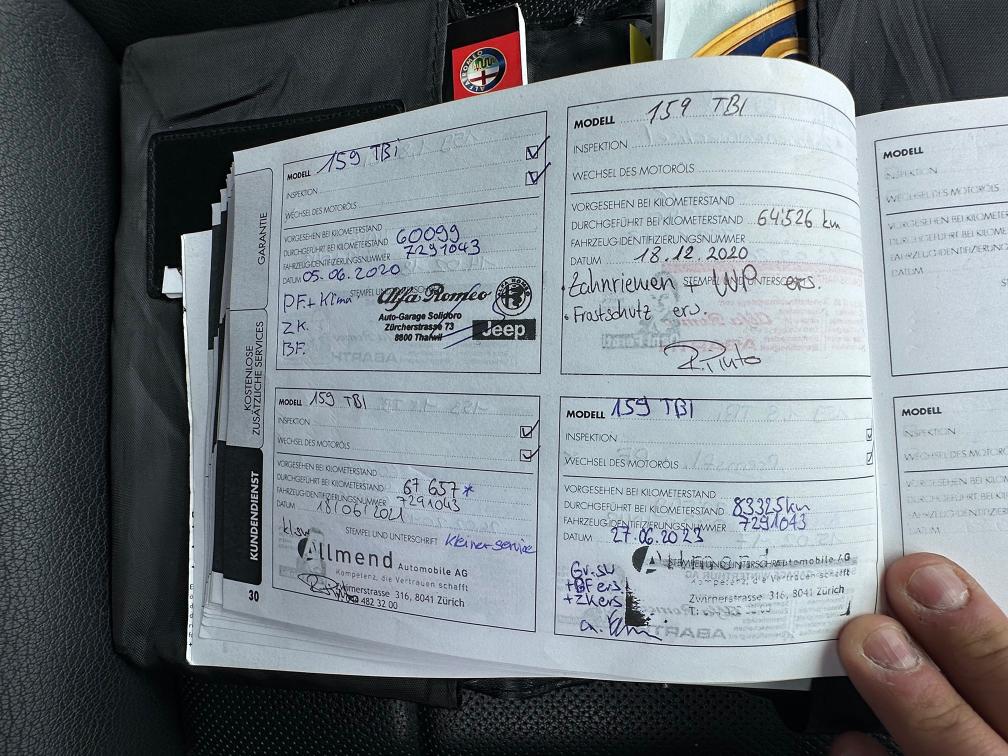 ALFA ROMEO
GARANTIE
KOSTENLOSE
ZUSÄTZLICHE SERVICES
KUNDENDIENST
30
MODELL 159 TBi
INSPEKTION
WECHSEL DES MOTORÖLS
VORGESEHEN BEI KILOMETERSTAND
DURCHGEFÜHRT BEI KILOMETERSTAND 60099
FAHRZEUGIDENTIFIZIERUNGSNUMMER 7291043
DATUM 05.06.2020
STEMPEL UND
PF.+ Klima
Alfa Romeo
Auto-Garage Solidoro
Zürcherstrasse 73
8800 Thalwil
Jeep
ZK.
BF.
MODELL 159 TBI
INSPEKTION
WECHSEL DES MOTORÖLS
VORGESEHEN BEI KILOMETERSTAND
DURCHGEFÜHRT BEI KILOMETERSTAND 64'526 km
FAHRZEUGIDENTIFIZIERUNGSNUMMER
DATUM 18.12.2020
STEMPEL UNTERSCHRIFT
• Zahnriemen + WP ers.
• Frostschutz ern.
R. Pinto
MODELL 159 TBI
INSPEKTION
WECHSEL DES MOTORÖLS
VORGESEHEN BEI KILOMETERSTAND
DURCHGEFÜHRT BEI KILOMETERSTAND 67 657 *
FAHRZEUGIDENTIFIZIERUNGSNUMMER 7291043
DATUM 18/06/2021
STEMPEL UND UNTERSCHRIFT kleiner service
Allmend Automobile AG
Kompetenz, die Vertrauen schafft
316, 8041 Zürich
482 32 00
MODELL 159 TBI
INSPEKTION
WECHSEL DES MOTORÖLS
VORGESEHEN BEI KILOMETERSTAND
DURCHGEFÜHRT BEI KILOMETERSTAND 83325km
FAHRZEUGIDENTIFIZIERUNGSNUMMER 7291043
DATUM 27.06.2023
STEMPEL UND UNTERSCHRIFT
Allmend Automobile AG
Kompetenz, die Vertrauen schafft
Zwirnerstrasse 316, 8041 Zürich
Gr. SU
+BF ers
+ZKers
MODELL
INSPEKTION
WECHSEL DES MOTORÖLS
VORGESEHEN BEI KILOMETERSTAND
DURCHGEFÜHRT BEI KILOMETERS
FAHRZEUGIDENTIFIZIERUNG
DATUM
MODELL
INSPEKTION
WECHSEL DES MOTORÖ
VORGESEHEN BEI KILOMET
DURCHGEFÜHRT BEI KILOM
FAHRZEUGIDENTIFIZIERUN
DATUM